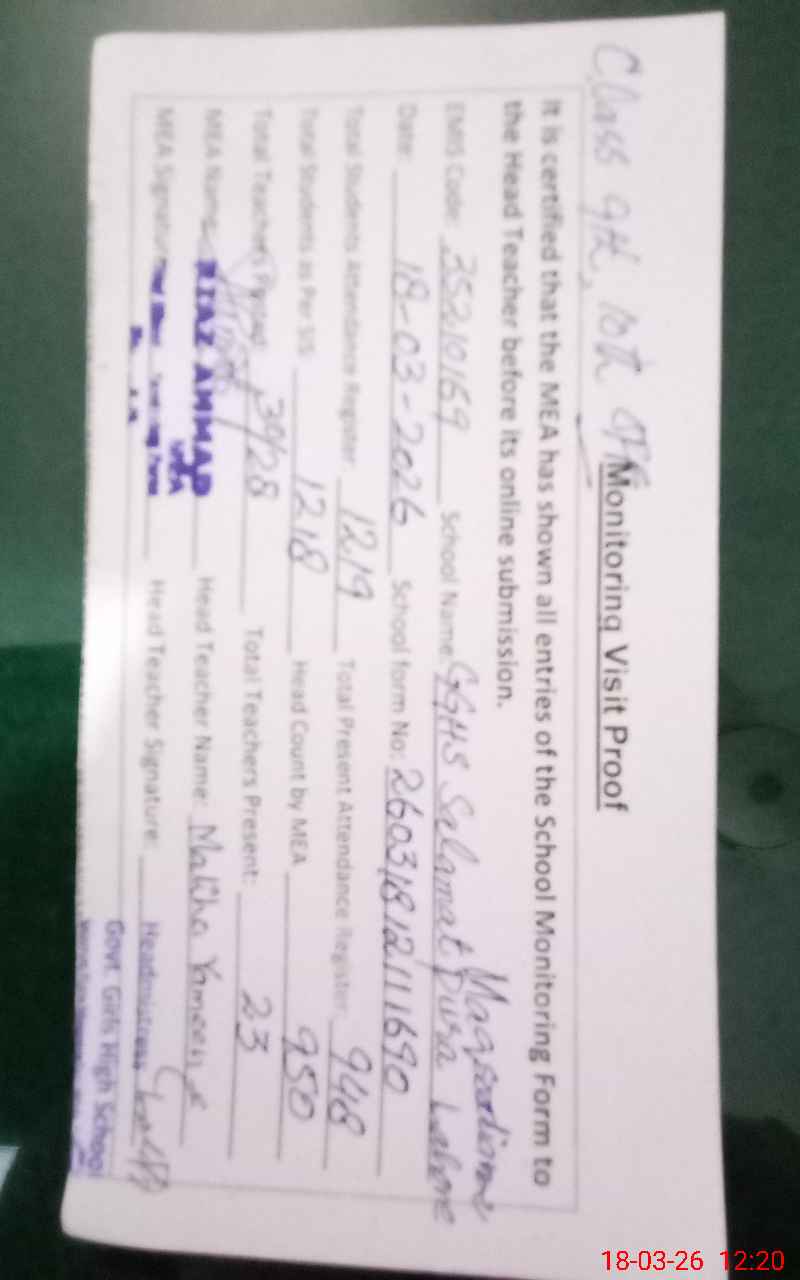 Class 9th, 10th off
Monitoring Visit Proof
It is certified that the MEA has shown all entries of the School Monitoring Form to
the Head Teacher before its online submission.
EMIS Code: 35210169 School Name: GGHS Salamat Pura Lahore
Date: 18-03-2026 School form No: 260318121111690
Total Students Attendance Register: 1219 Total Present Attendance Register: 948
Total Students as Per SIS: 1218 Head Count by MEA 950
Total Teachers Posted: 28 Total Teachers Present: 23
MEA Name: RIAZ AHMAD Head Teacher Name: Maliha Yameen
MEA
MEA Signature: Head Teacher Signature: Headmistress
Govt. Girls High School
18-03-26 12:20